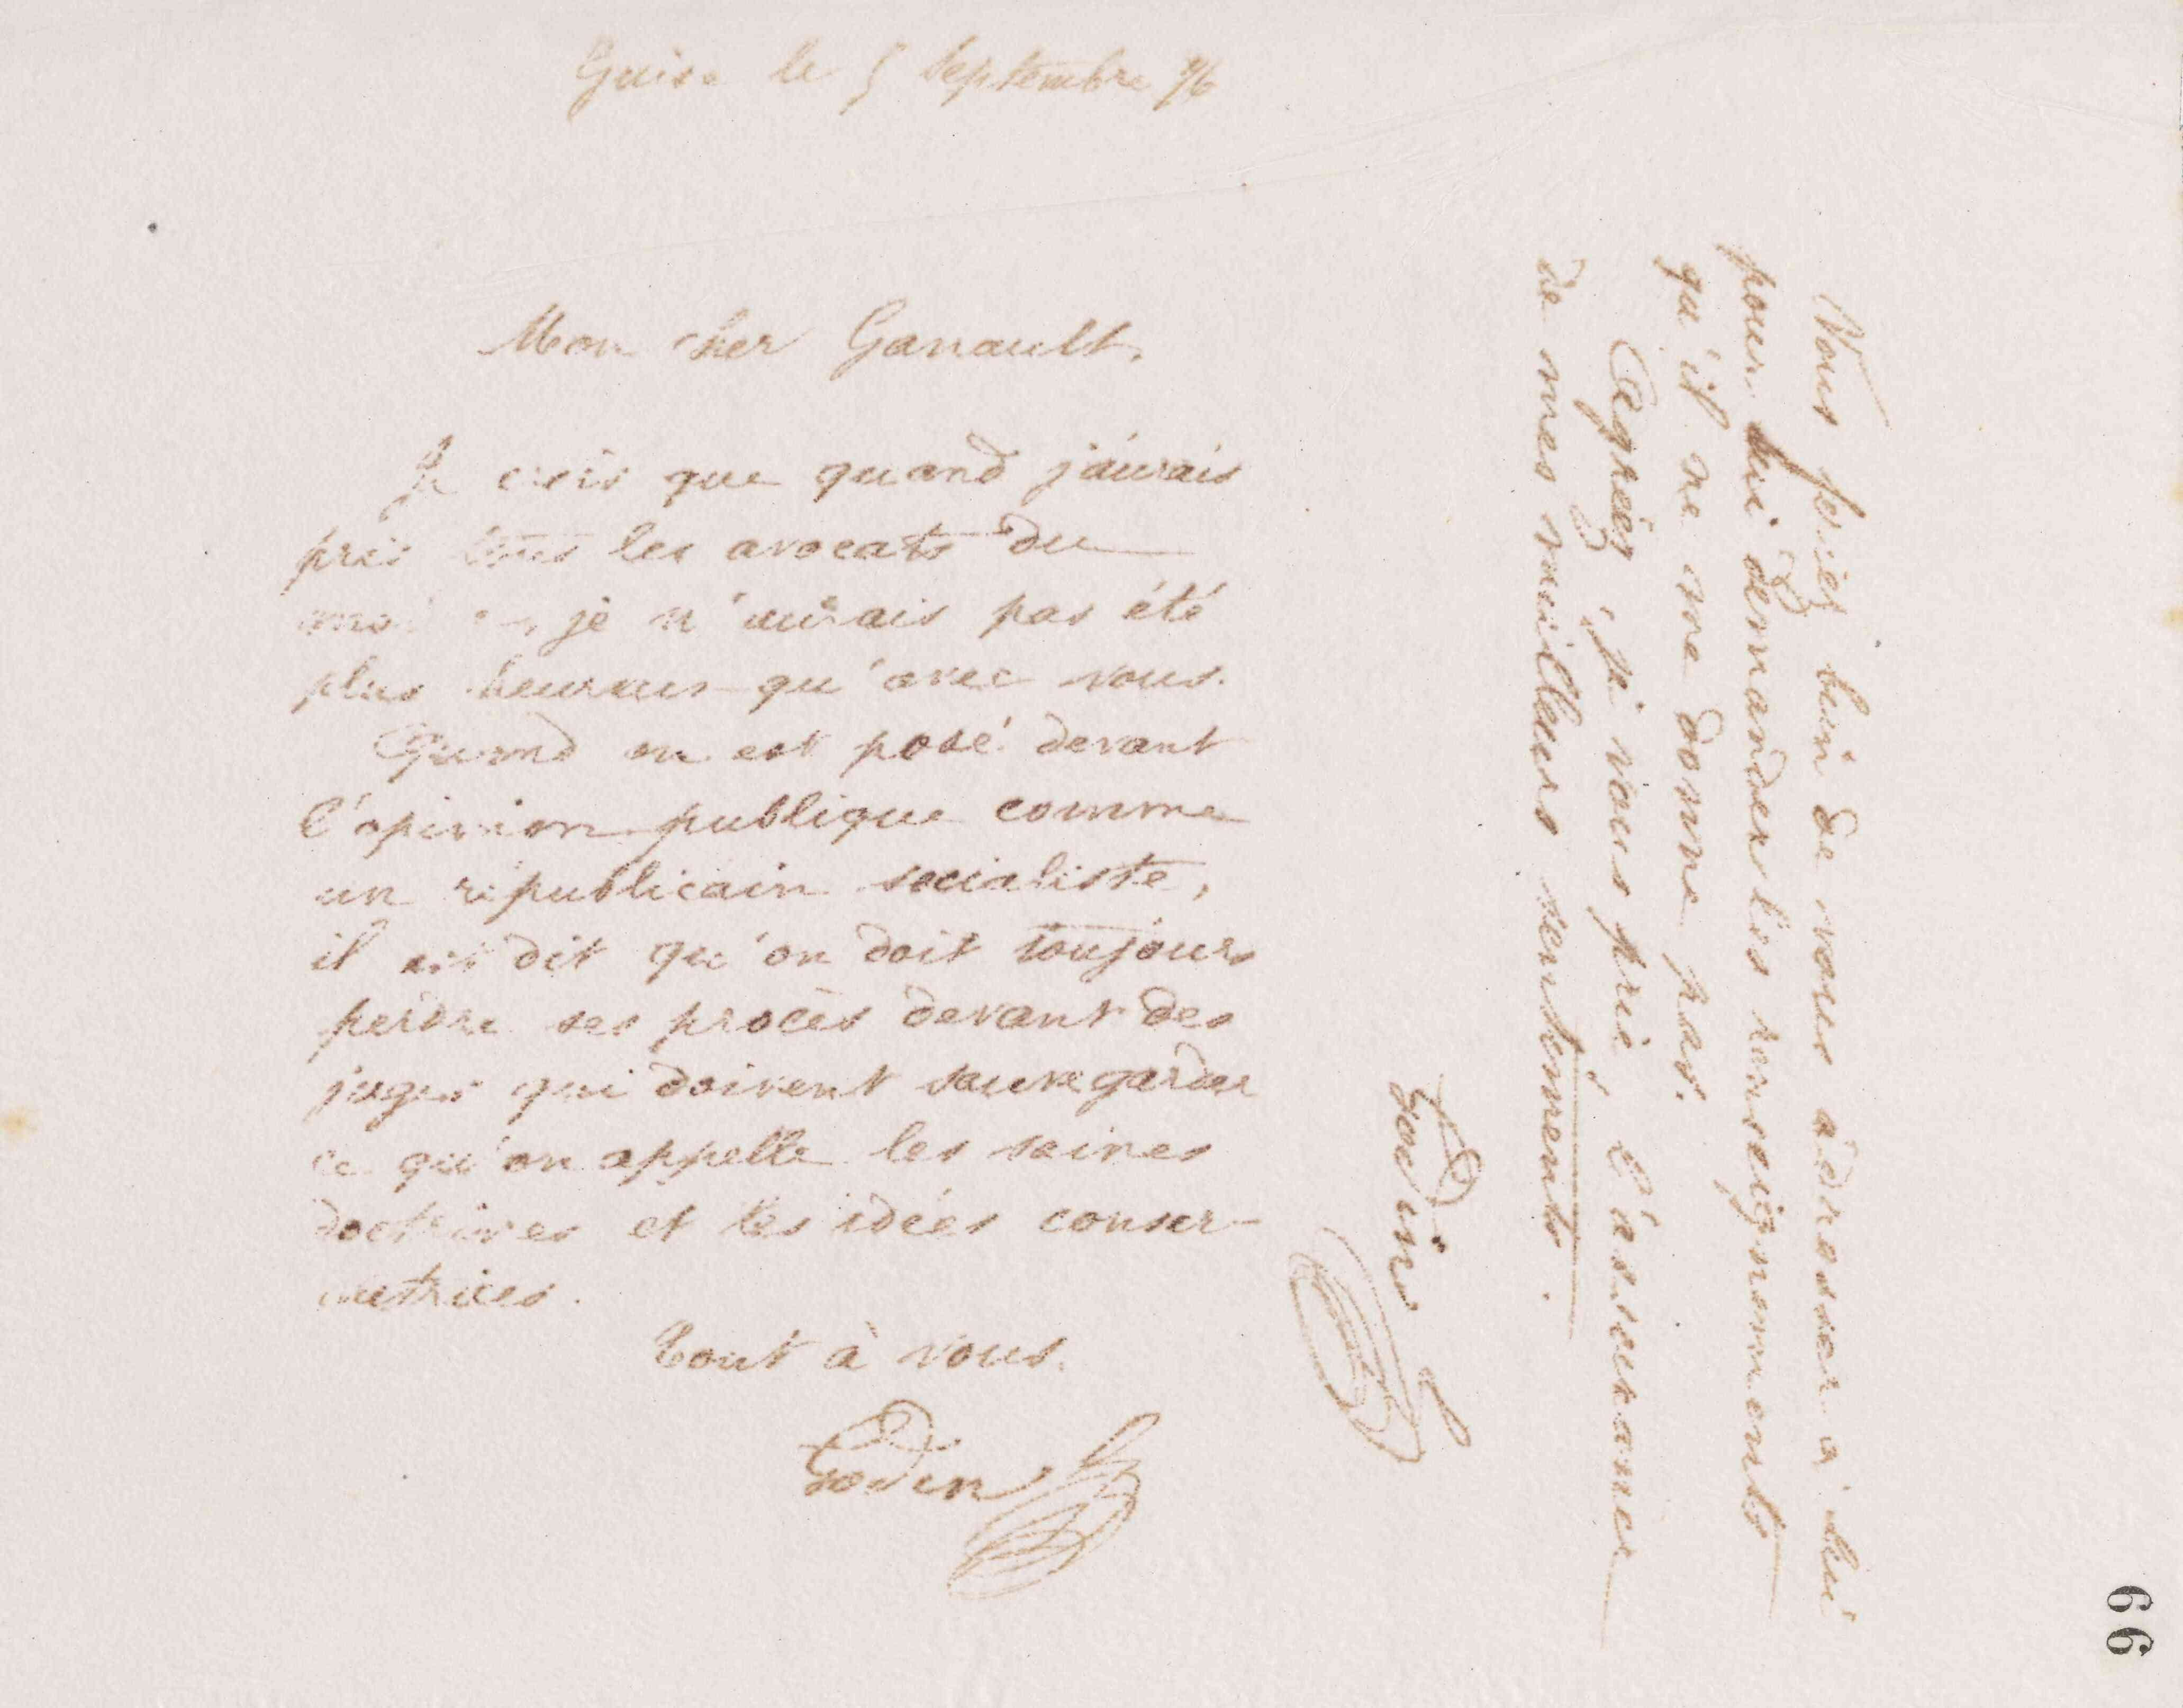 Guise le 5 septembre 76
Mon cher Ganault,
Je crois que quand j'aurais
pris tous les avocats du
je n'aurais pas été
plus heureux qu'avec vous.
Quand on est posé devant
l'opinion publique comme
un républicain socialiste,
il est dit qu'on doit toujours
perdre ses procès devant des
juges qui doivent sauvegarder
ce qu'on appelle les saines
doctrines et les idées conser-
vatrices.
Tout à vous.
Godin
Vous feriez bien de vous adresser à lui
pour lui demander les renseignements
qu'il ne me donne pas.
Agréez, je vous prie, l'assurance
de mes meilleurs sentiments.
Godin
66